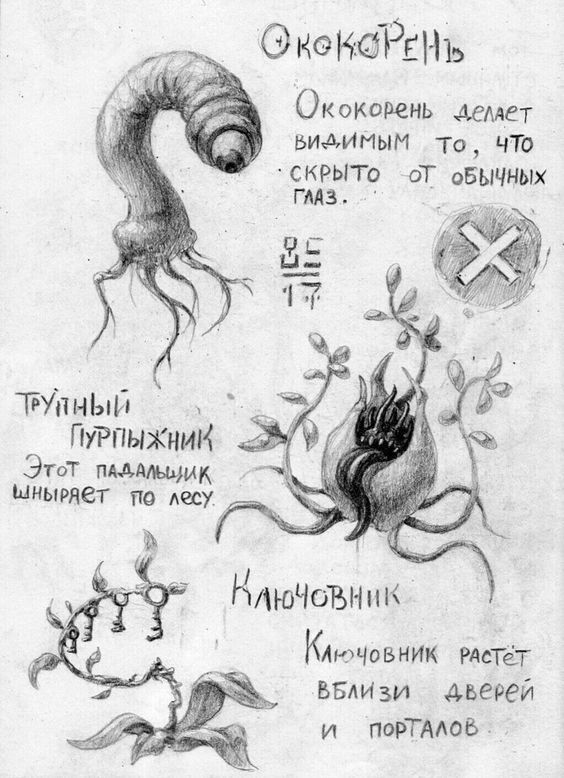 Ококорень
Ококорень делает
видимым то, что
скрыто от обычных
глаз.
17
Трупный
пурпыжник
Этот падальщик
шныряет по лесу.
Ключовник
Ключовник растёт
вблизи дверей
и порталов.